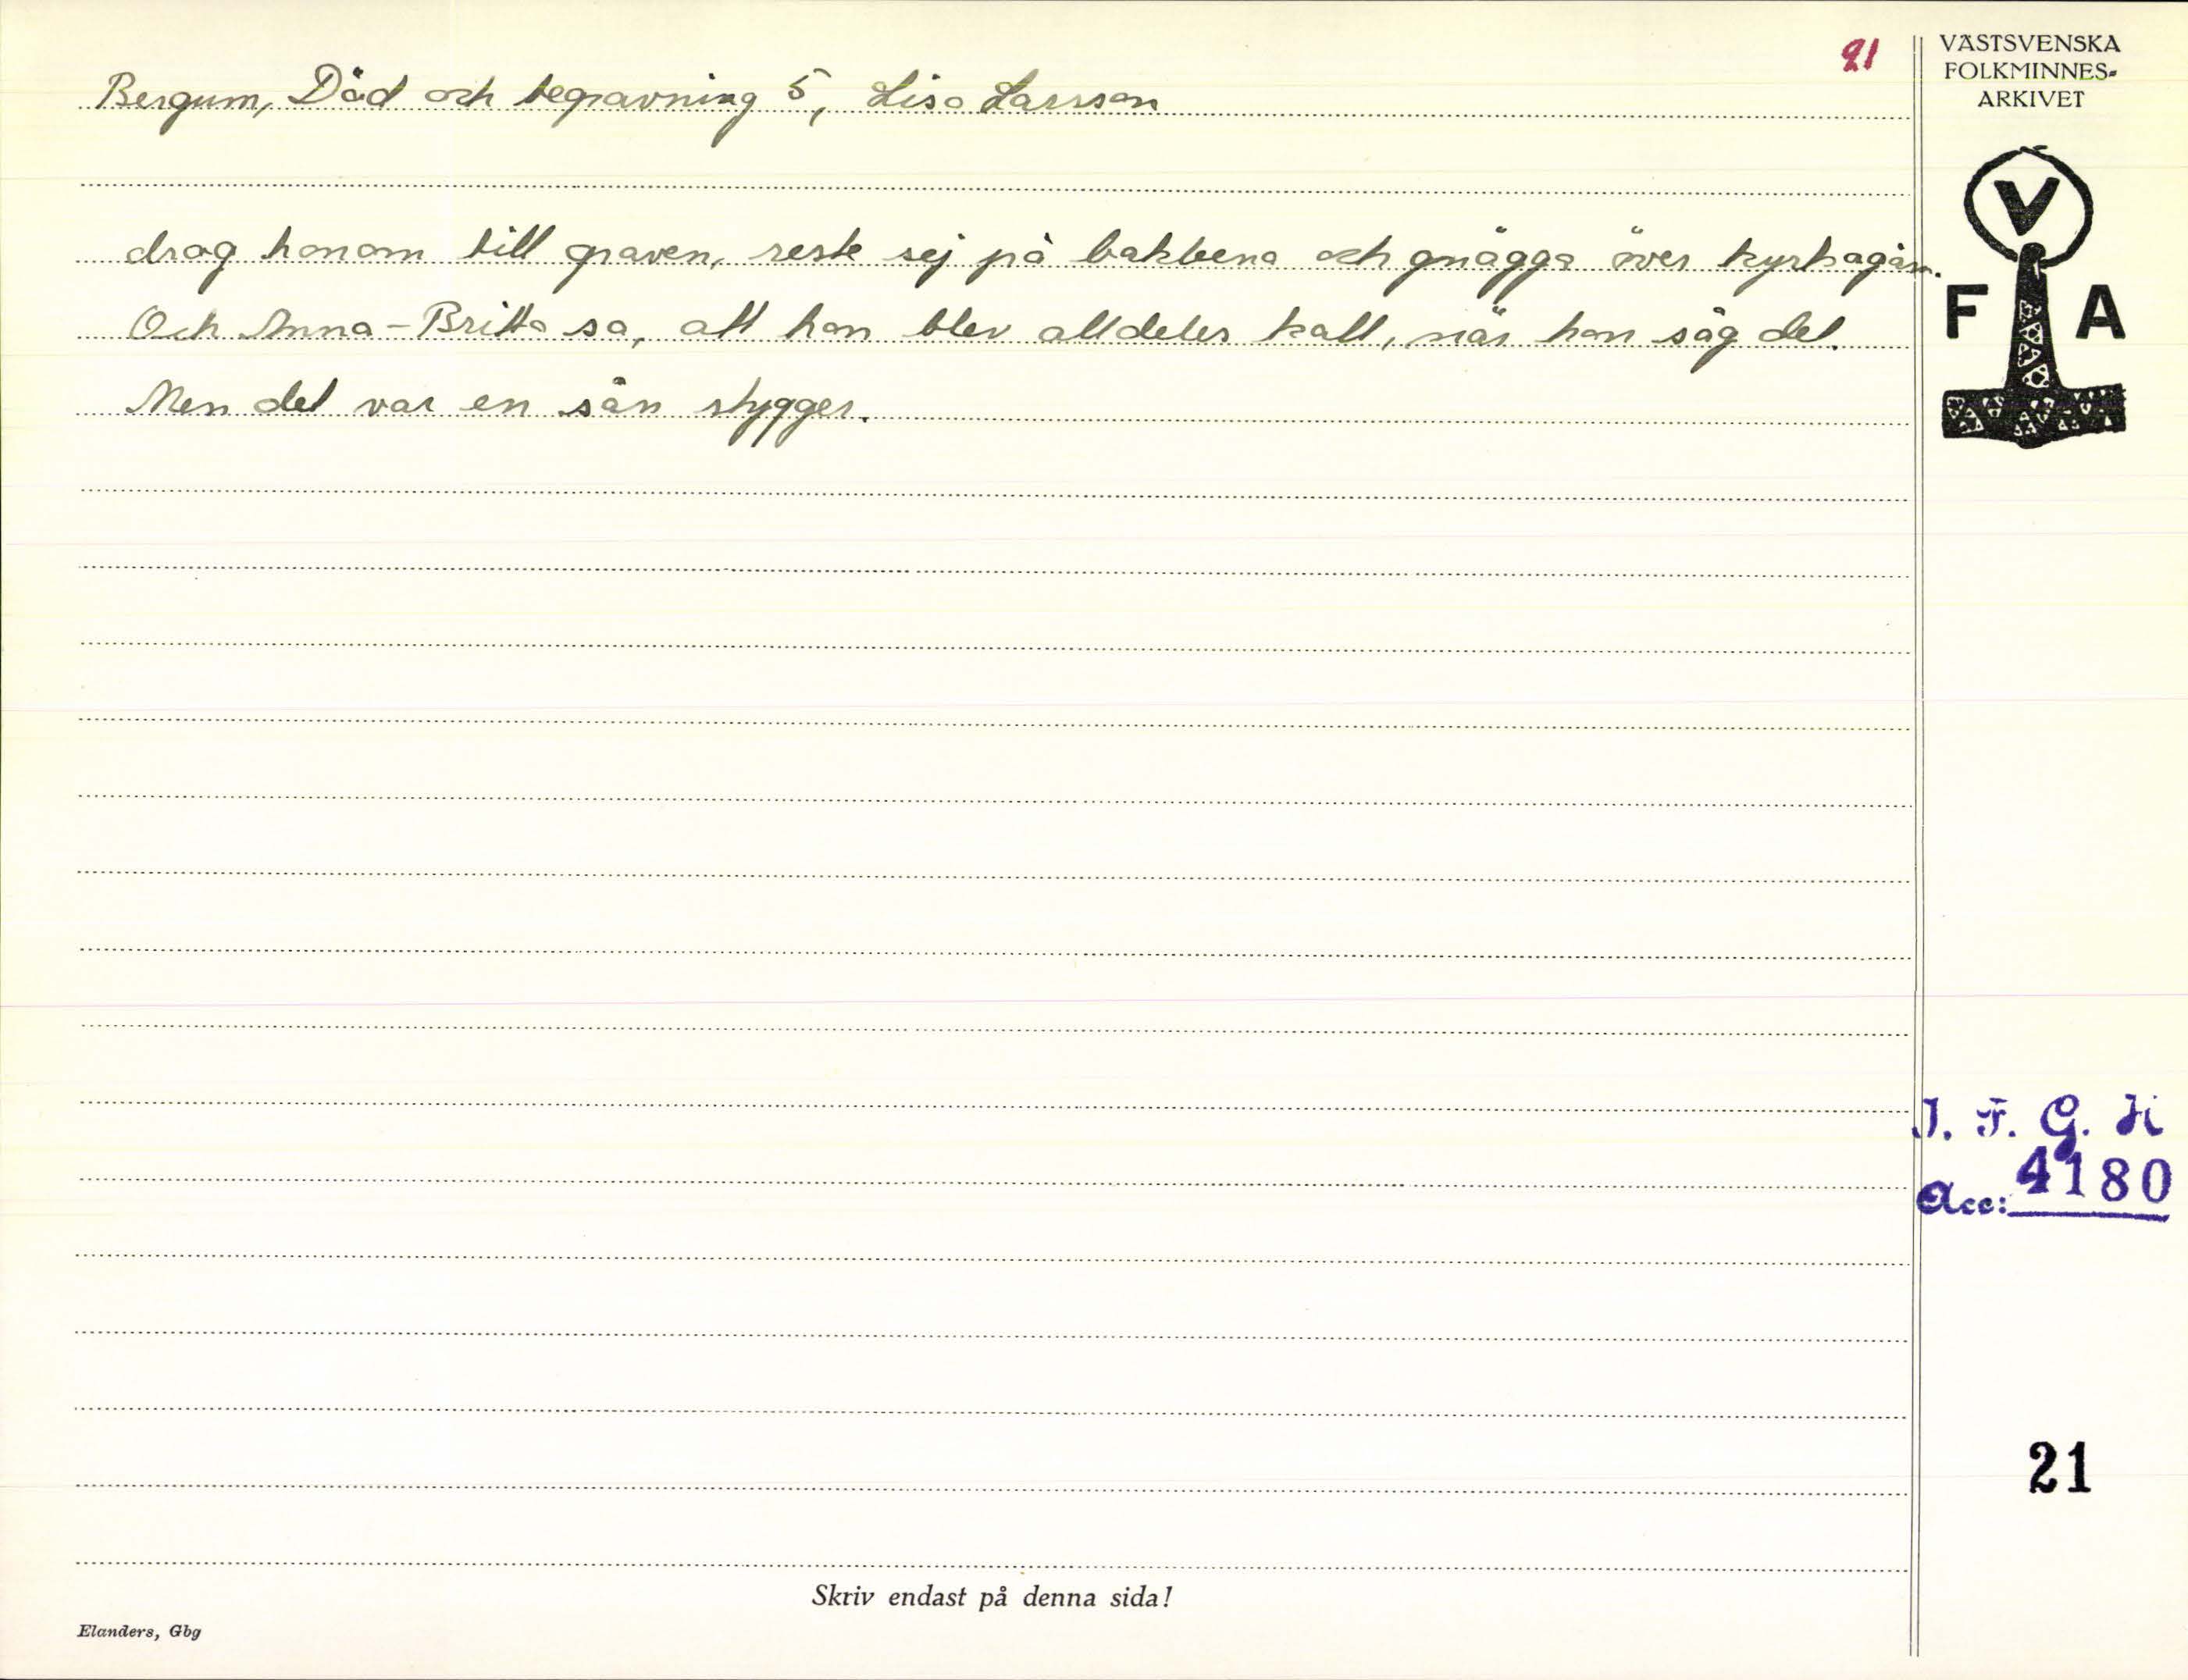 Bergum, Död och begravning 5, Lisa Larsson
21
drog honom till graven, reste sej på bakbena och gnägga över kyrkagårn.
Och Anna-Britta sa, att hon blev alldeles kall, när hon såg det.
Men det var en sån stygger.
VÄSTSVENSKA
FOLKMINNES-
ARKIVET
V
F A
I. F. G. H
Acc: 4180
21
Skriv endast på denna sida!
Elanders, Gbg